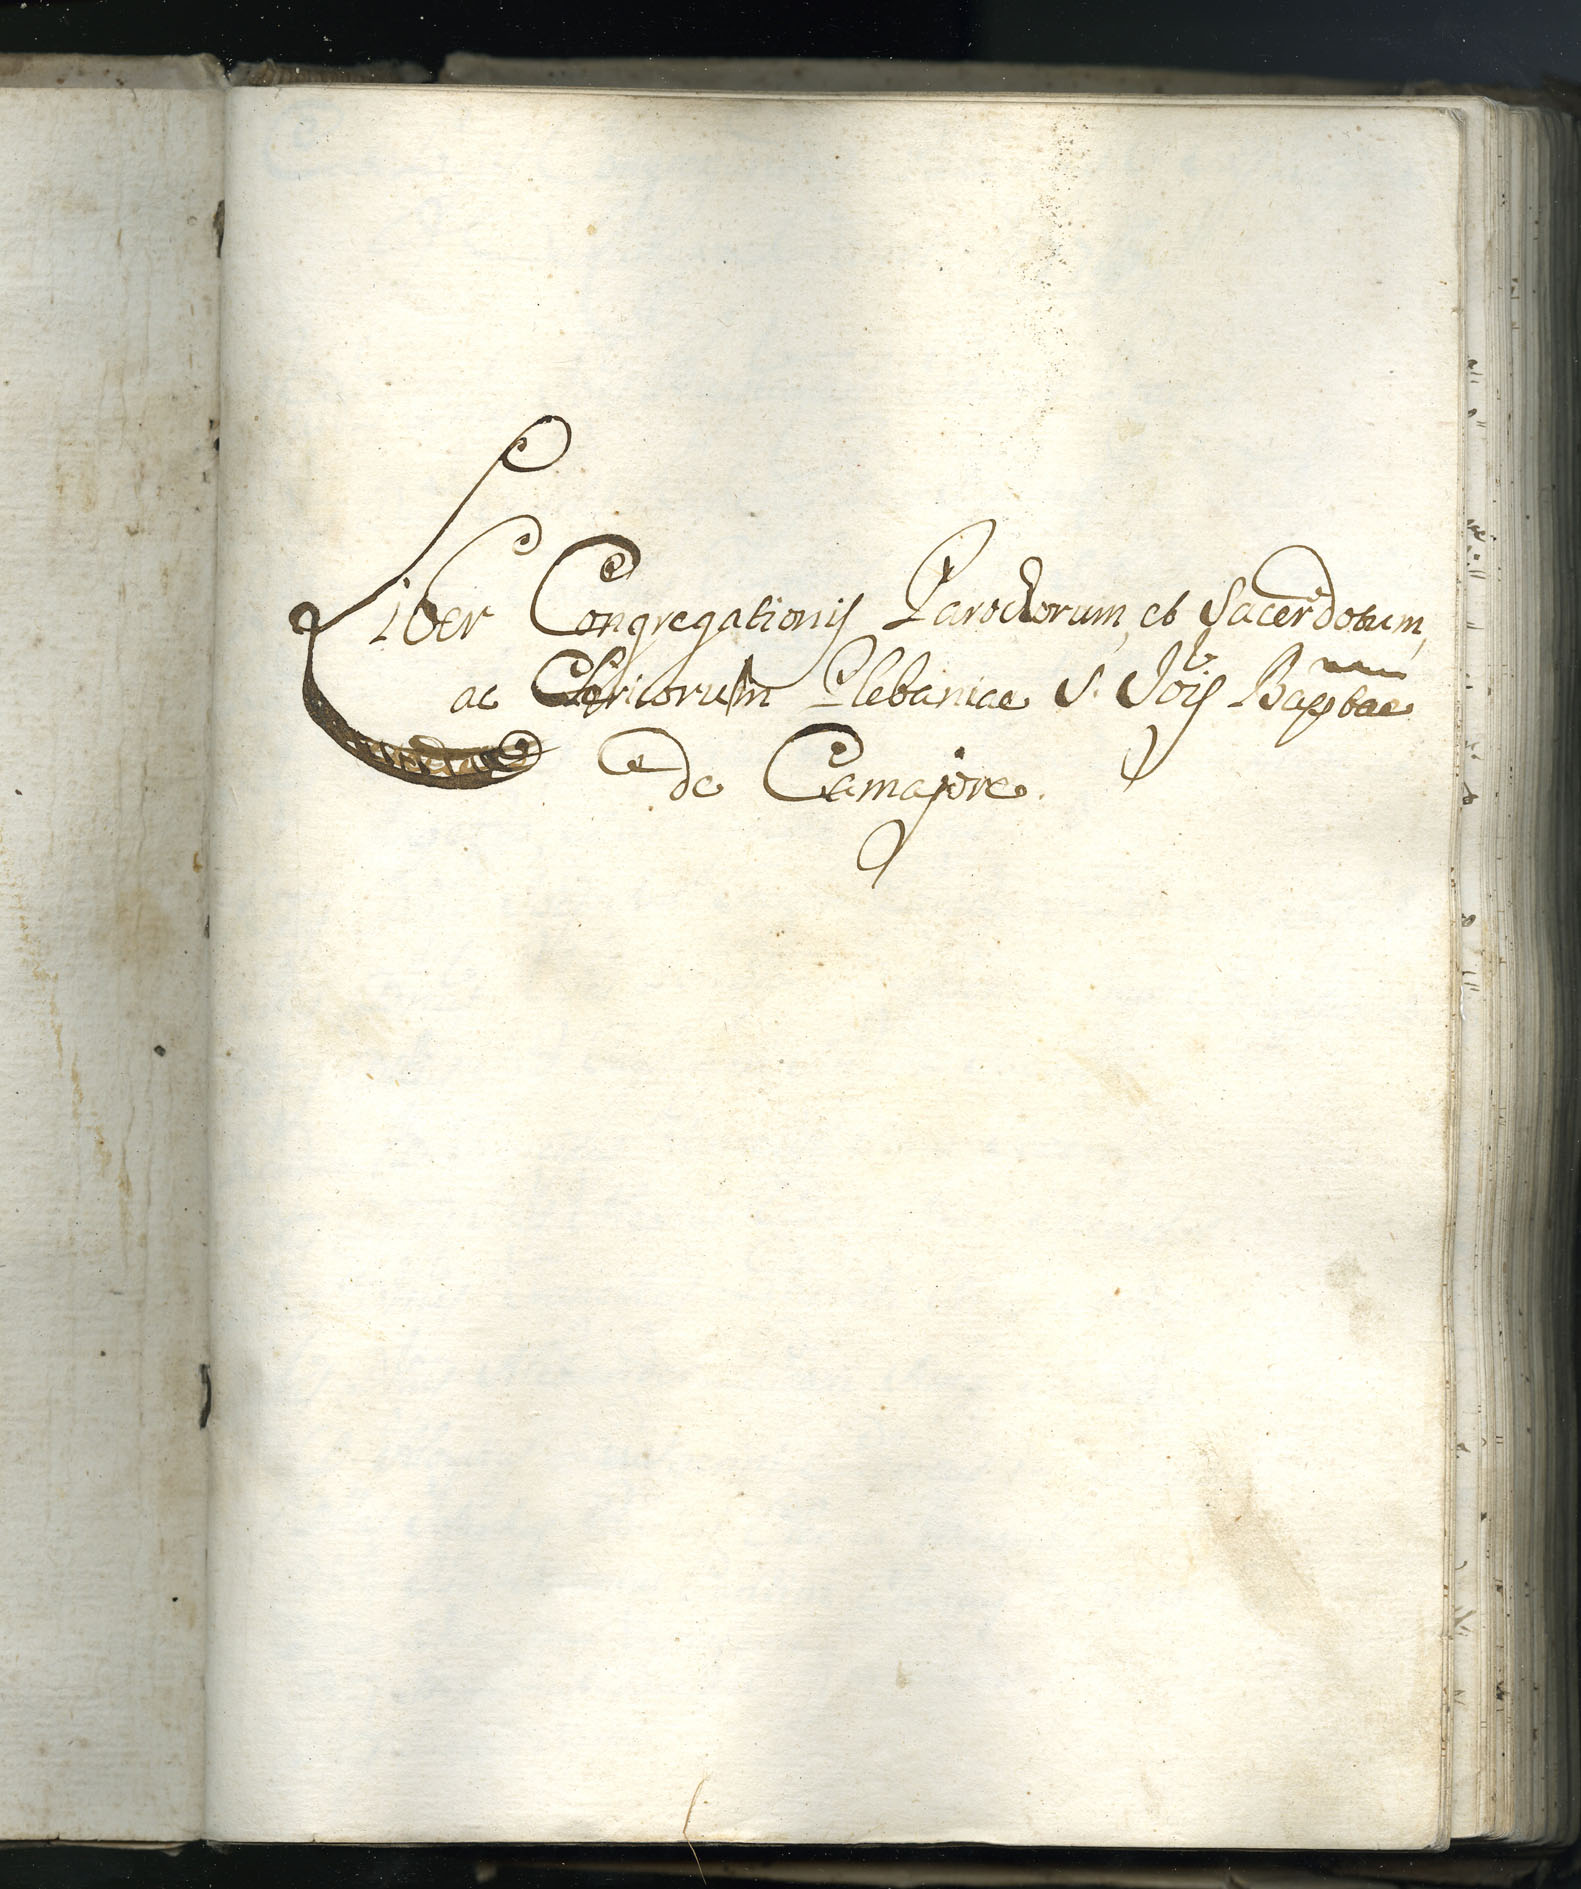 Liber Congregationis Parochorum, et Sacerdotum,
ac Clericorum Plebaniae S. Jois Bapbae
de Camajore.